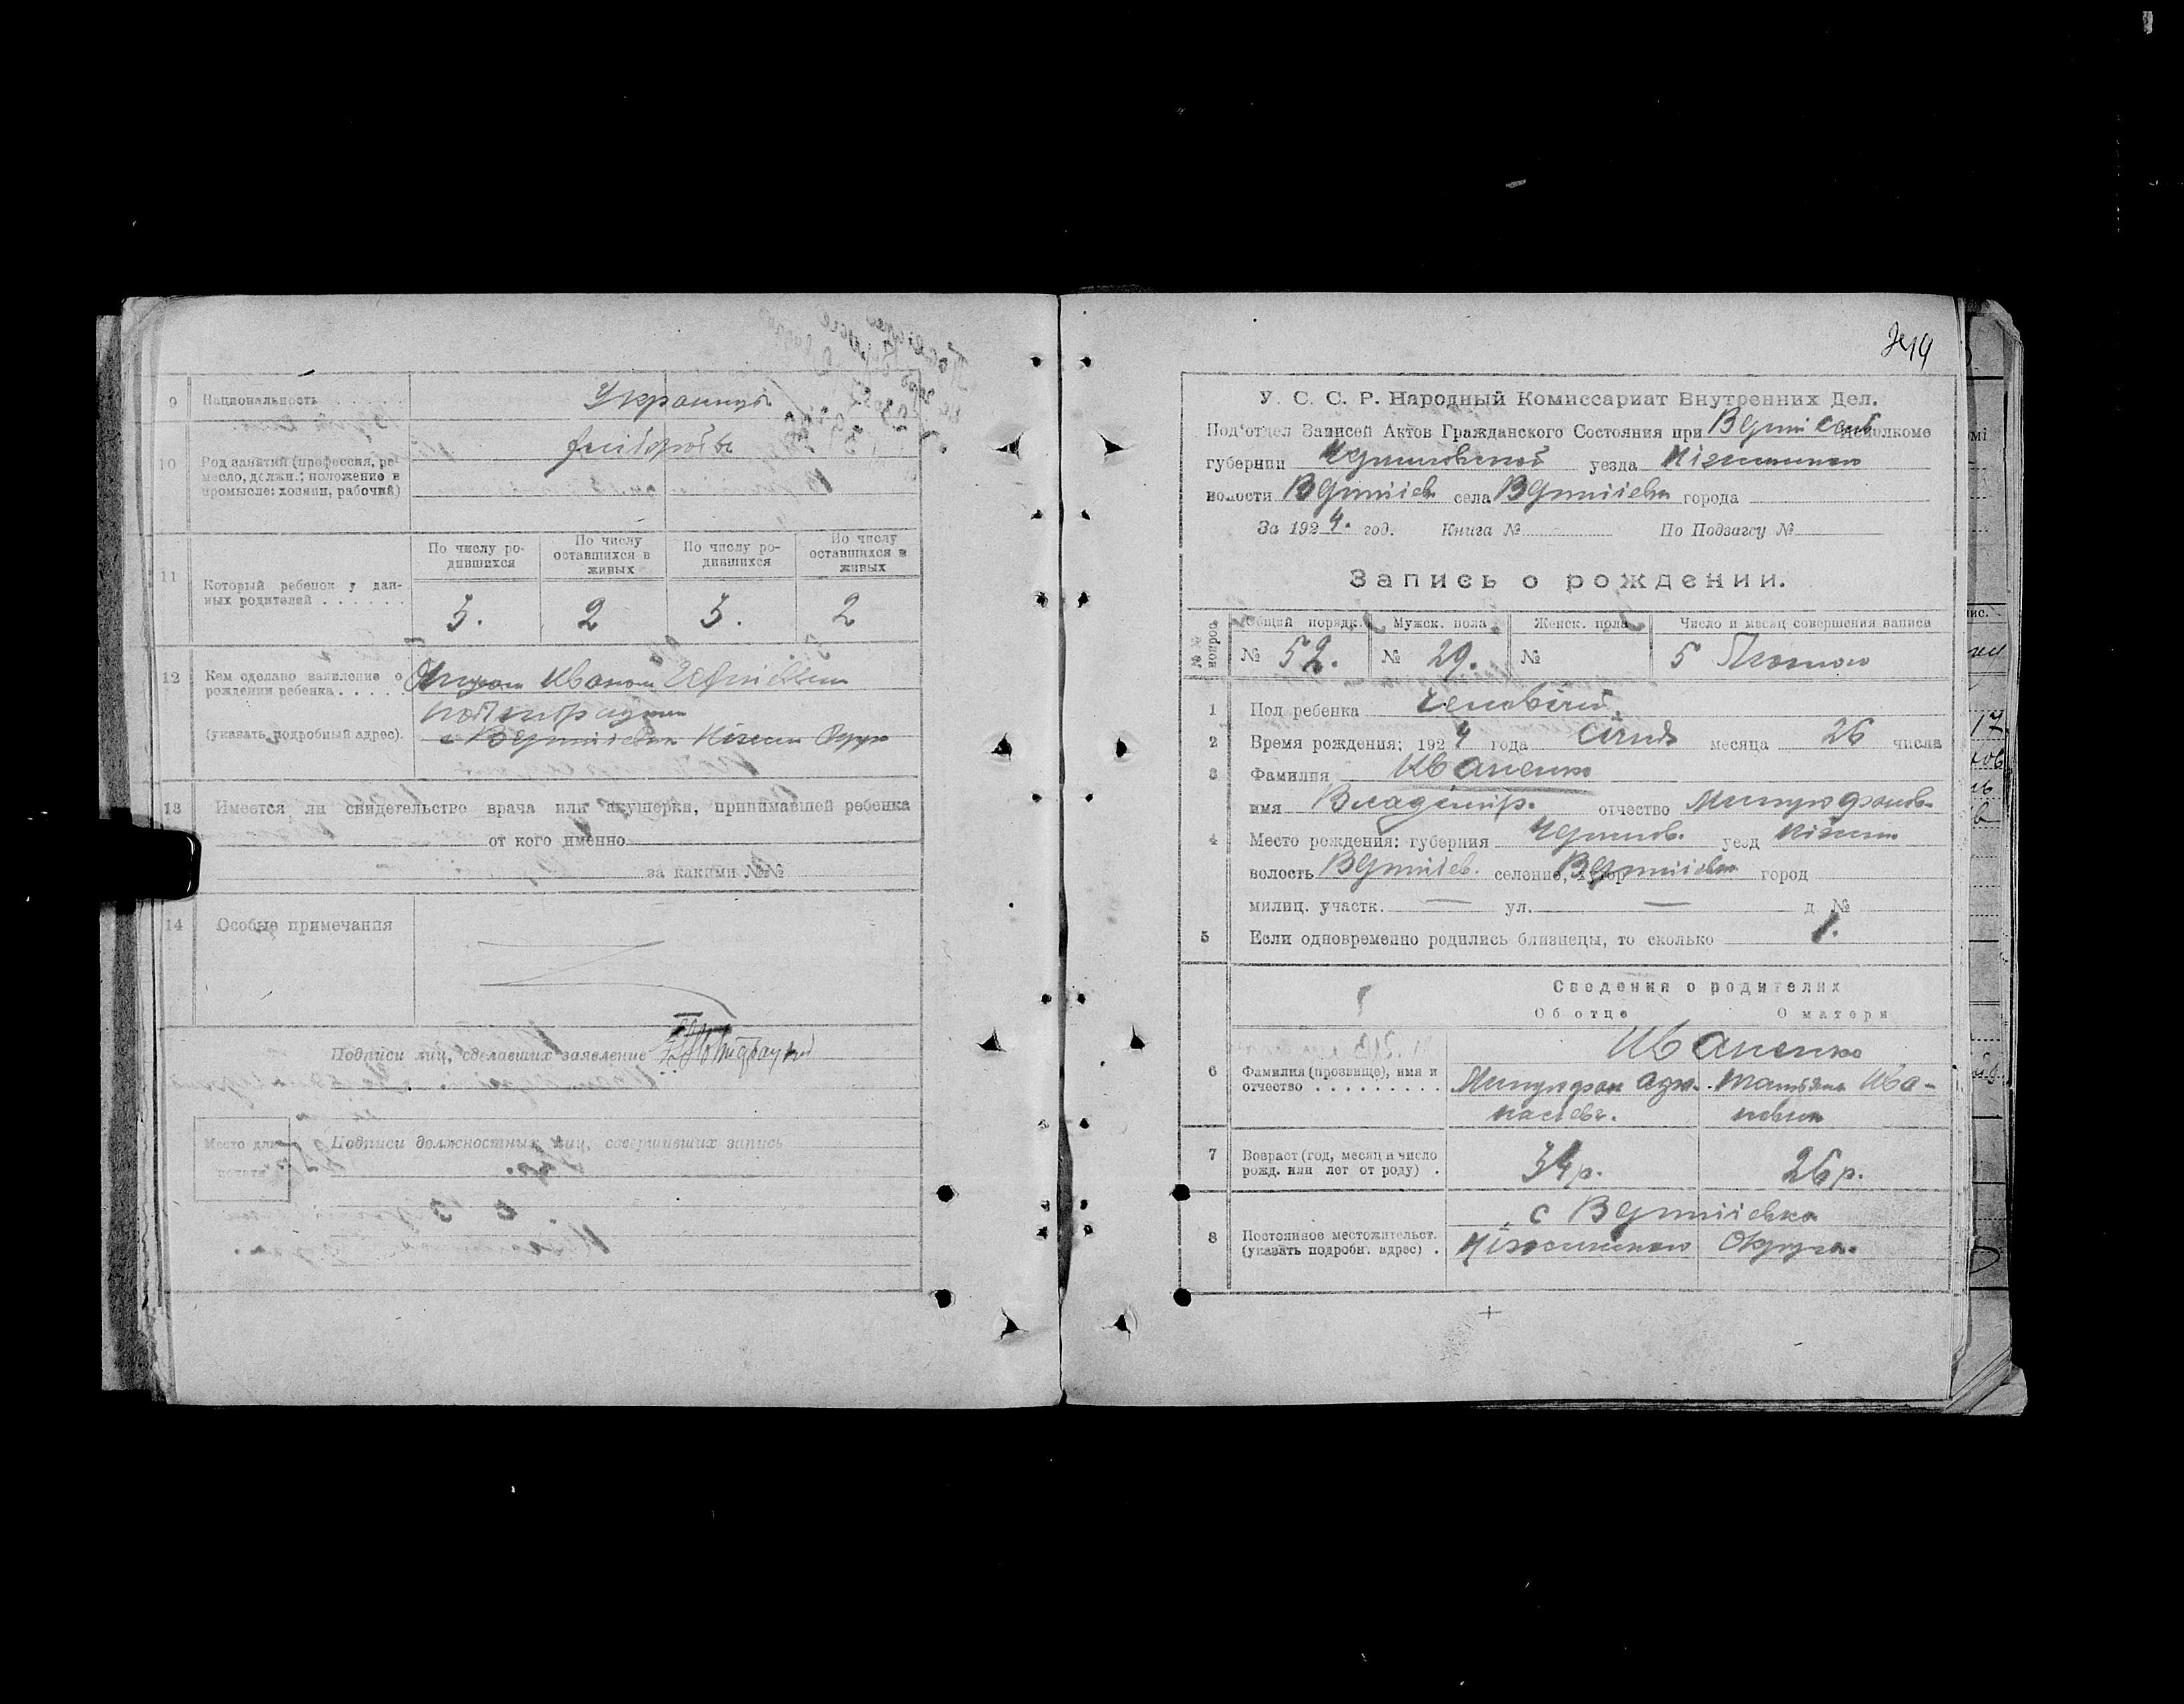 9 Национальность . . . . . Украинцы
10 Род занятий (професссия, ре-
месло, должн.; положение в
промысле: хозяин, рабочий)
хлібороби
11 Который ребенок у дан-
ных родителей . . . . . . .
По числу ро-
дившихся
По числу
оставшихся в
живых
По числу ро-
дившихся
По числу
оставшихся в
живых
3. 2 3. 2
12 Кем сделано заявление о
рождении ребенка . . . . .
(указать подробный адрес).
Иваном
с Вертиіевка Ніжин Округ
13 Имеется ли свидетельство врача или акушерки, принимавшей ребенка
от кого именно
за какими №№
14 Особые примечания
Подписи лиц, сделавших заявление
Место для
печати
Подписи должностных лиц, совершивших запись
У. С. С. Р. Народный Комиссариат Внутренних Дел.
Под'отдел Записей Актов Гражданского Состояния при Верти Исполкоме
губернии Черниговской уезда Ніжинского
волости Вертиіев села Вертиіевка города
За 1924. год. Книга № По Подзагсу №
Запись о рождении.
№№ вопрос.
Общий порядк. Мужск. пола Женск. пола Число и месяц совершения записи
№ 52. № 29. № 5 Лютого
1 Пол ребенка человічий.
2 Время рождения: 1924 года Січня месяца 26 числа
3 Фамилия Иваненко
имя Владімір. отчество Митрофанов.
4 Место рождения: губерния Чернигов. уезд Ніжин
волость Вертиіев. селение, хутор Вертиіевка город
милиц. участк. — ул. — д. №
5 Если одновременно родились близнецы, то сколько 1.
Сведения о родителях
Об отце О матери
Иваненко
6 Фамилия (прозвище), имя и
отчество . . . . . . . . . .
Митрофан Афа-
насіев.
Татьяна Ива-
новна
7 Возраст (год, месяц и число
рожд. или лет от роду) .
34 р. 26 р.
8 Постоянное местожительст.
(указать подробн. адрес) .
с Вертиіевка
Ніжинского Округа.